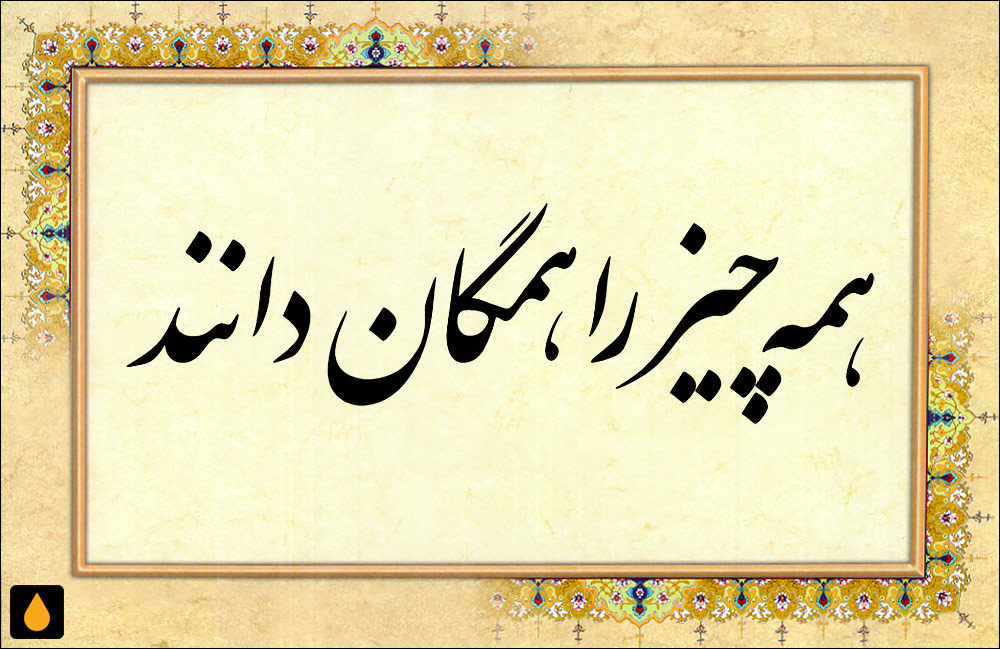 همه چیز را همگان دانند